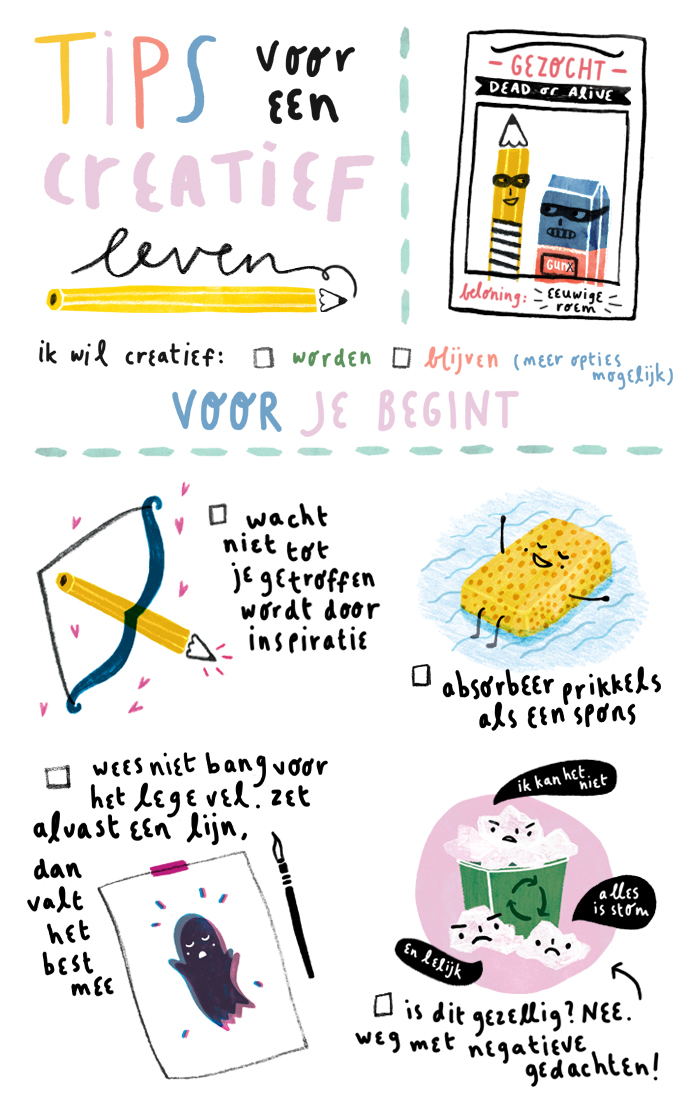 TiPS voor
EEN
CREATiEF
leven
GEZOCHT
DEAD or ALiVE
Gum
beloning: EEUWIGE
roem
ik wil creatief: worden blijven (meer opties
mogelijk)
VOOR JE BEGINT
wacht
niet tot
je getroffen
wordt door
inspiratie
absorbeer prikkels
als een spons
wees niet bang voor
het lege vel. zet
alvast een lijn,
dan
valt
het
best
mee
ik kan het
niet
alles
is stom
en lelijk
is dit gezellig? NEE.
weg met negatieve
gedachten!